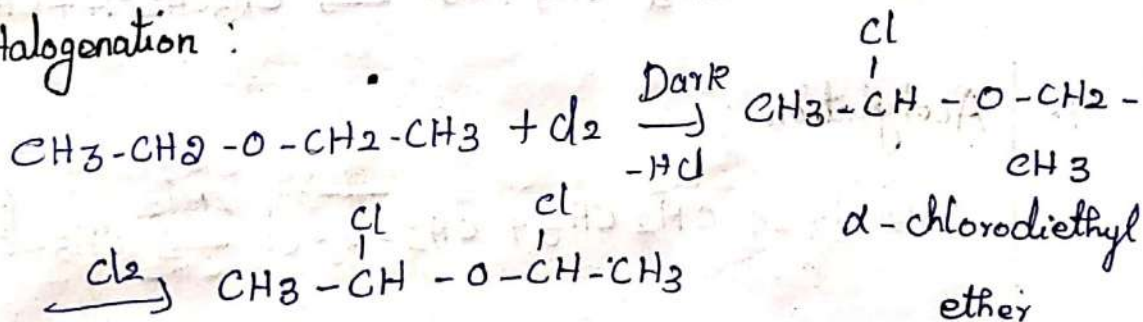 Halogenation :
CH3-CH2-O-CH2-CH3 + Cl2 Dark -HCl → CH3-CH(Cl)-O-CH2-
CH3
α-chlorodiethyl
ether
Cl2 → CH3-CH(Cl)-O-CH(Cl)-CH3